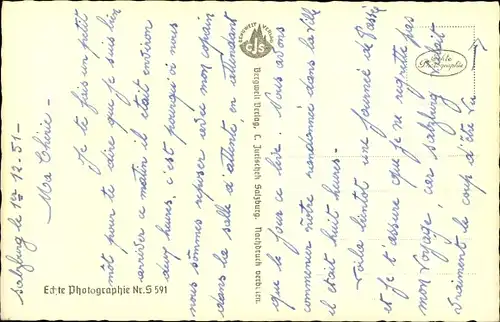 Salzburg le 1er 12.51-
Ma Chérie -
Je te fais un petit
mot pour te dire que je suis bien
arrivée ce matin il était environ
aux heures, c'est pourquoi nous
nous sommes reposer avec mon copain
dans la salle d'attente, en attendant
que le jour se lève. Nous avons
commencer notre randonnée dans la ville
il était huit heures -
Voilà bientôt une journée de passée
et je t'assure que je ne regrette pas
mon voyage, car Salzburg était
vraiment le coup d'être vu
Echte Photographie Nr. S 591
BERGWELT VERLAG
CJS
Bergwelt Verlag, C. Jurischek Salzburg. Nachdruck verboten.
Echte
Photographie